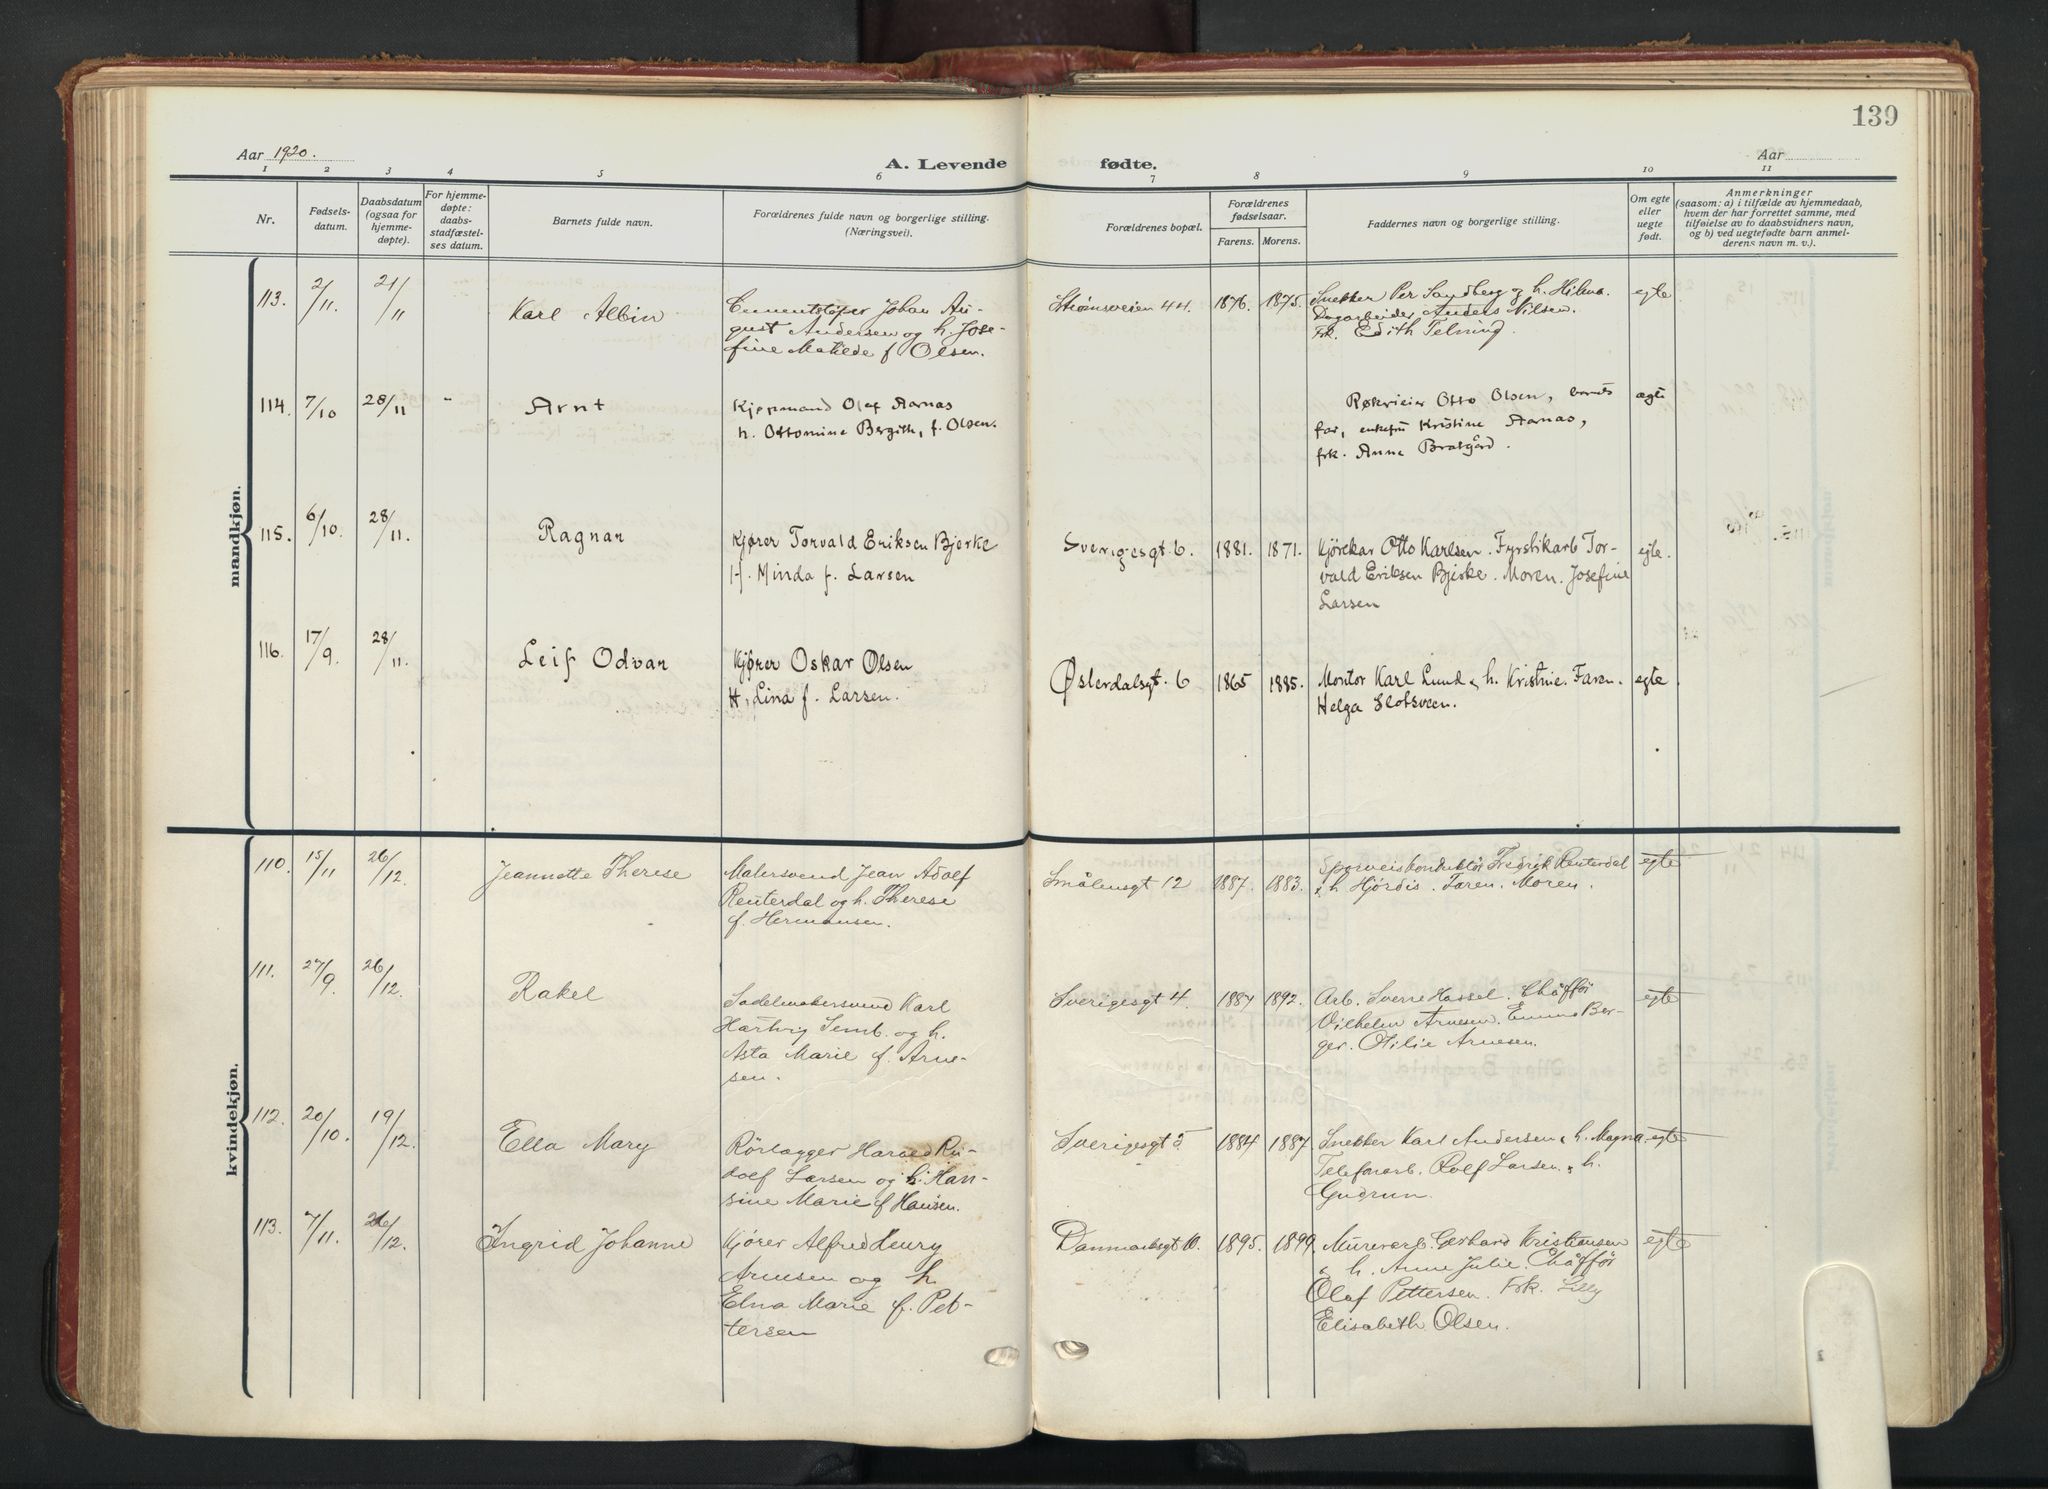 139
Aar 1920.
A. Levende fødte.
Aar
1 2 3 4 5 6 7 8 9 10 11
Nr.
Fødsels-
datum.
Daabsdatum
(ogsaa for
hjemme-
døpte).
For hjemme-
døpte:
daabs-
stadfæstel-
ses datum.
Barnets fulde navn.
Forældrenes fulde navn og borgerlige stilling.
(Næringsvei).
Forældrenes bopæl.
Forældrenes
fødselsaar.
Farens. Morens.
Faddernes navn og borgerlige stilling.
Om egte
eller
uegte
født.
Anmerkninger
(saasom: a) i tilfælde av hjemmedaab,
hvem der har forrettet samme, med
tilføielse av to daabsvidners navn,
og b) ved uegtefødte barn anmel-
derens navn m. v.).
mandkjøn.
113. 2/11 21/11 Karl Albin
Cementstøper Johan Au-
gust Andersen og h. Jose-
fine Matilde f Olsen.
Strømsveien 44 1876. 1875.
Snekker Per Sandberg og h. Hilma.
Dagarbeider Anders Nilsen.
Frk. Edith Telning.
egte
114. 7/10 28/11 " Arnt
Kjøpmand Olaf Aarnas
h. Ottomine Bergith, f. Olsen.
Røkrieier Otto Olsen, barnets
far, enkefru Kristine Aarnas,
frk. Anne Bratgård.
ægte
115. 6/10 28/11. Ragnar
Kjører Torvald Eriksen Bjerke
H. Minda f. Larsen
Sverigesgt 6. 1881. 1871.
Kjørekar Otto Karlsen. Fyrstikarb Tor-
vald Eriksen Bjerke. Moren. Josefine
Larsen
egte.
116. 17/9. 28/11. Leif Odvar
Kjører Oskar Olsen
H. Lina f. Larsen.
Østerdalsgt. 6 1865 1885.
Montør Karl Lund & h. Kristine. Faren.
Helga Slotsveen.
egte
kvindekjøn.
110. 15/11 26/12. Jeannette Therese
Malersvend Jean Adolf
Renterdal og h. Therese
f. Hermansen.
Smålensgt 12 1887. 1883.
Sporveiskonduktør Fredrik Renterdal
& h. Hjørdis. Faren. Moren.
egte
111. 27/9. 26/12. Rakel
Sadelmakersvend Karl
Hartvig Semb. og h.
Asta Marie f. Arne-
sen.
Sverigesgt 4. 1887 1892.
Arb. Sverre Hassel. Chåffør
Vilhelm Arnesen. Emma Ber-
ger. Otilie Arnesen.
egte
112. 20/10. 19/12. Ella Mary
Rørlægger Harald Ru-
dolf Larsen og h. Han-
sine Marie f Hansen.
Sverigesgt 5 1884 1887
Snekker Karl Andersen & h. Magna.
Telefonarb. Rolf Larsen & h.
Gudrun.
egte
113. 7/11. 26/12. Ingrid Johanne
Kjører Alfred Henry
Arnesen og h.
Elna Marie f. Pet-
tersen
Danmarksgt 10. 1895. 1899.
Murerarb. Gerhard Kristiansen
& h. Anne Julie. Chåffør
Olaf Pettersen. Frk. Lilly
Elisabeth Olsen.
egte